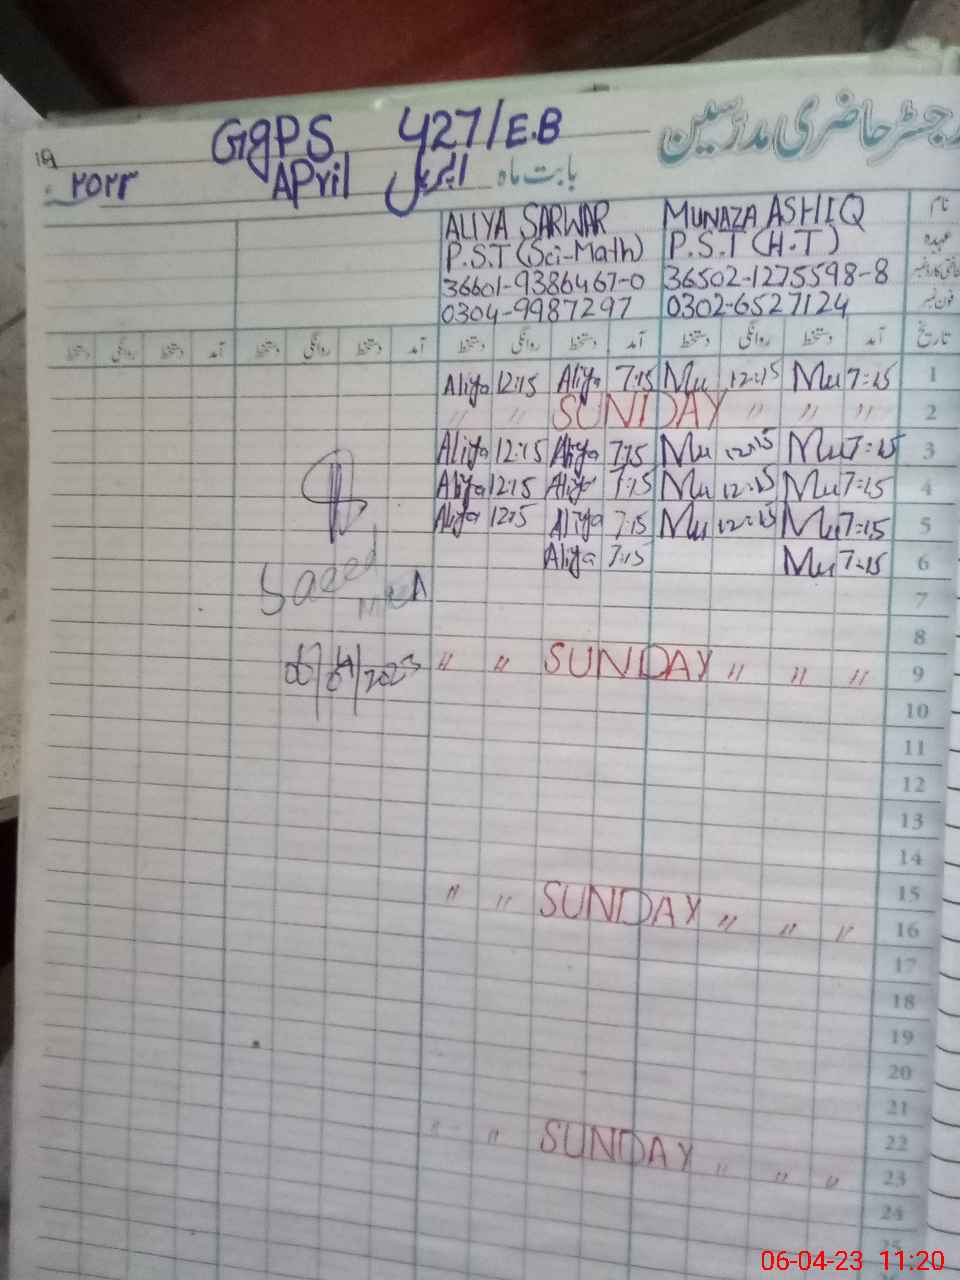 رجسٹر حاضری مدرسین
GgPS 427/E.B
۲۰۲۳ April اپریل بابت ماہ
ALIYA SARWAR MUNAZA ASHIQ نام
P.S.T (Sci-Math) P.S.T (H.T) عہدہ
36601-9386467-0 36502-1275598-8
0304-9987297 0302-6527124 فون نمبر
دستخط روانگی دستخط آمد دستخط روانگی دستخط آمد دستخط روانگی دستخط آمد دستخط روانگی دستخط آمد تاریخ
Aliya 12:15 Aliya 7:15 Mu 12:15 Mu 7:15 1
" " SUNDAY " " " 2
Aliya 12:15 Aliya 7:15 Mu 12:15 Mu 7:15 3
Aliya 12:15 Aliya 7:15 Mu 12:15 Mu 7:15 4
Aliya 12:15 Aliya 7:15 Mu 12:15 Mu 7:15 5
Aliya 7:15 Mu 7:15 6
Saeed
7
8
06/04/2023 " " SUNDAY " " " 9
10
11
12
13
14
15
" " SUNDAY " " " 16
17
18
19
20
21
22
" " SUNDAY " " " 23
24
25
06-04-23 11:20